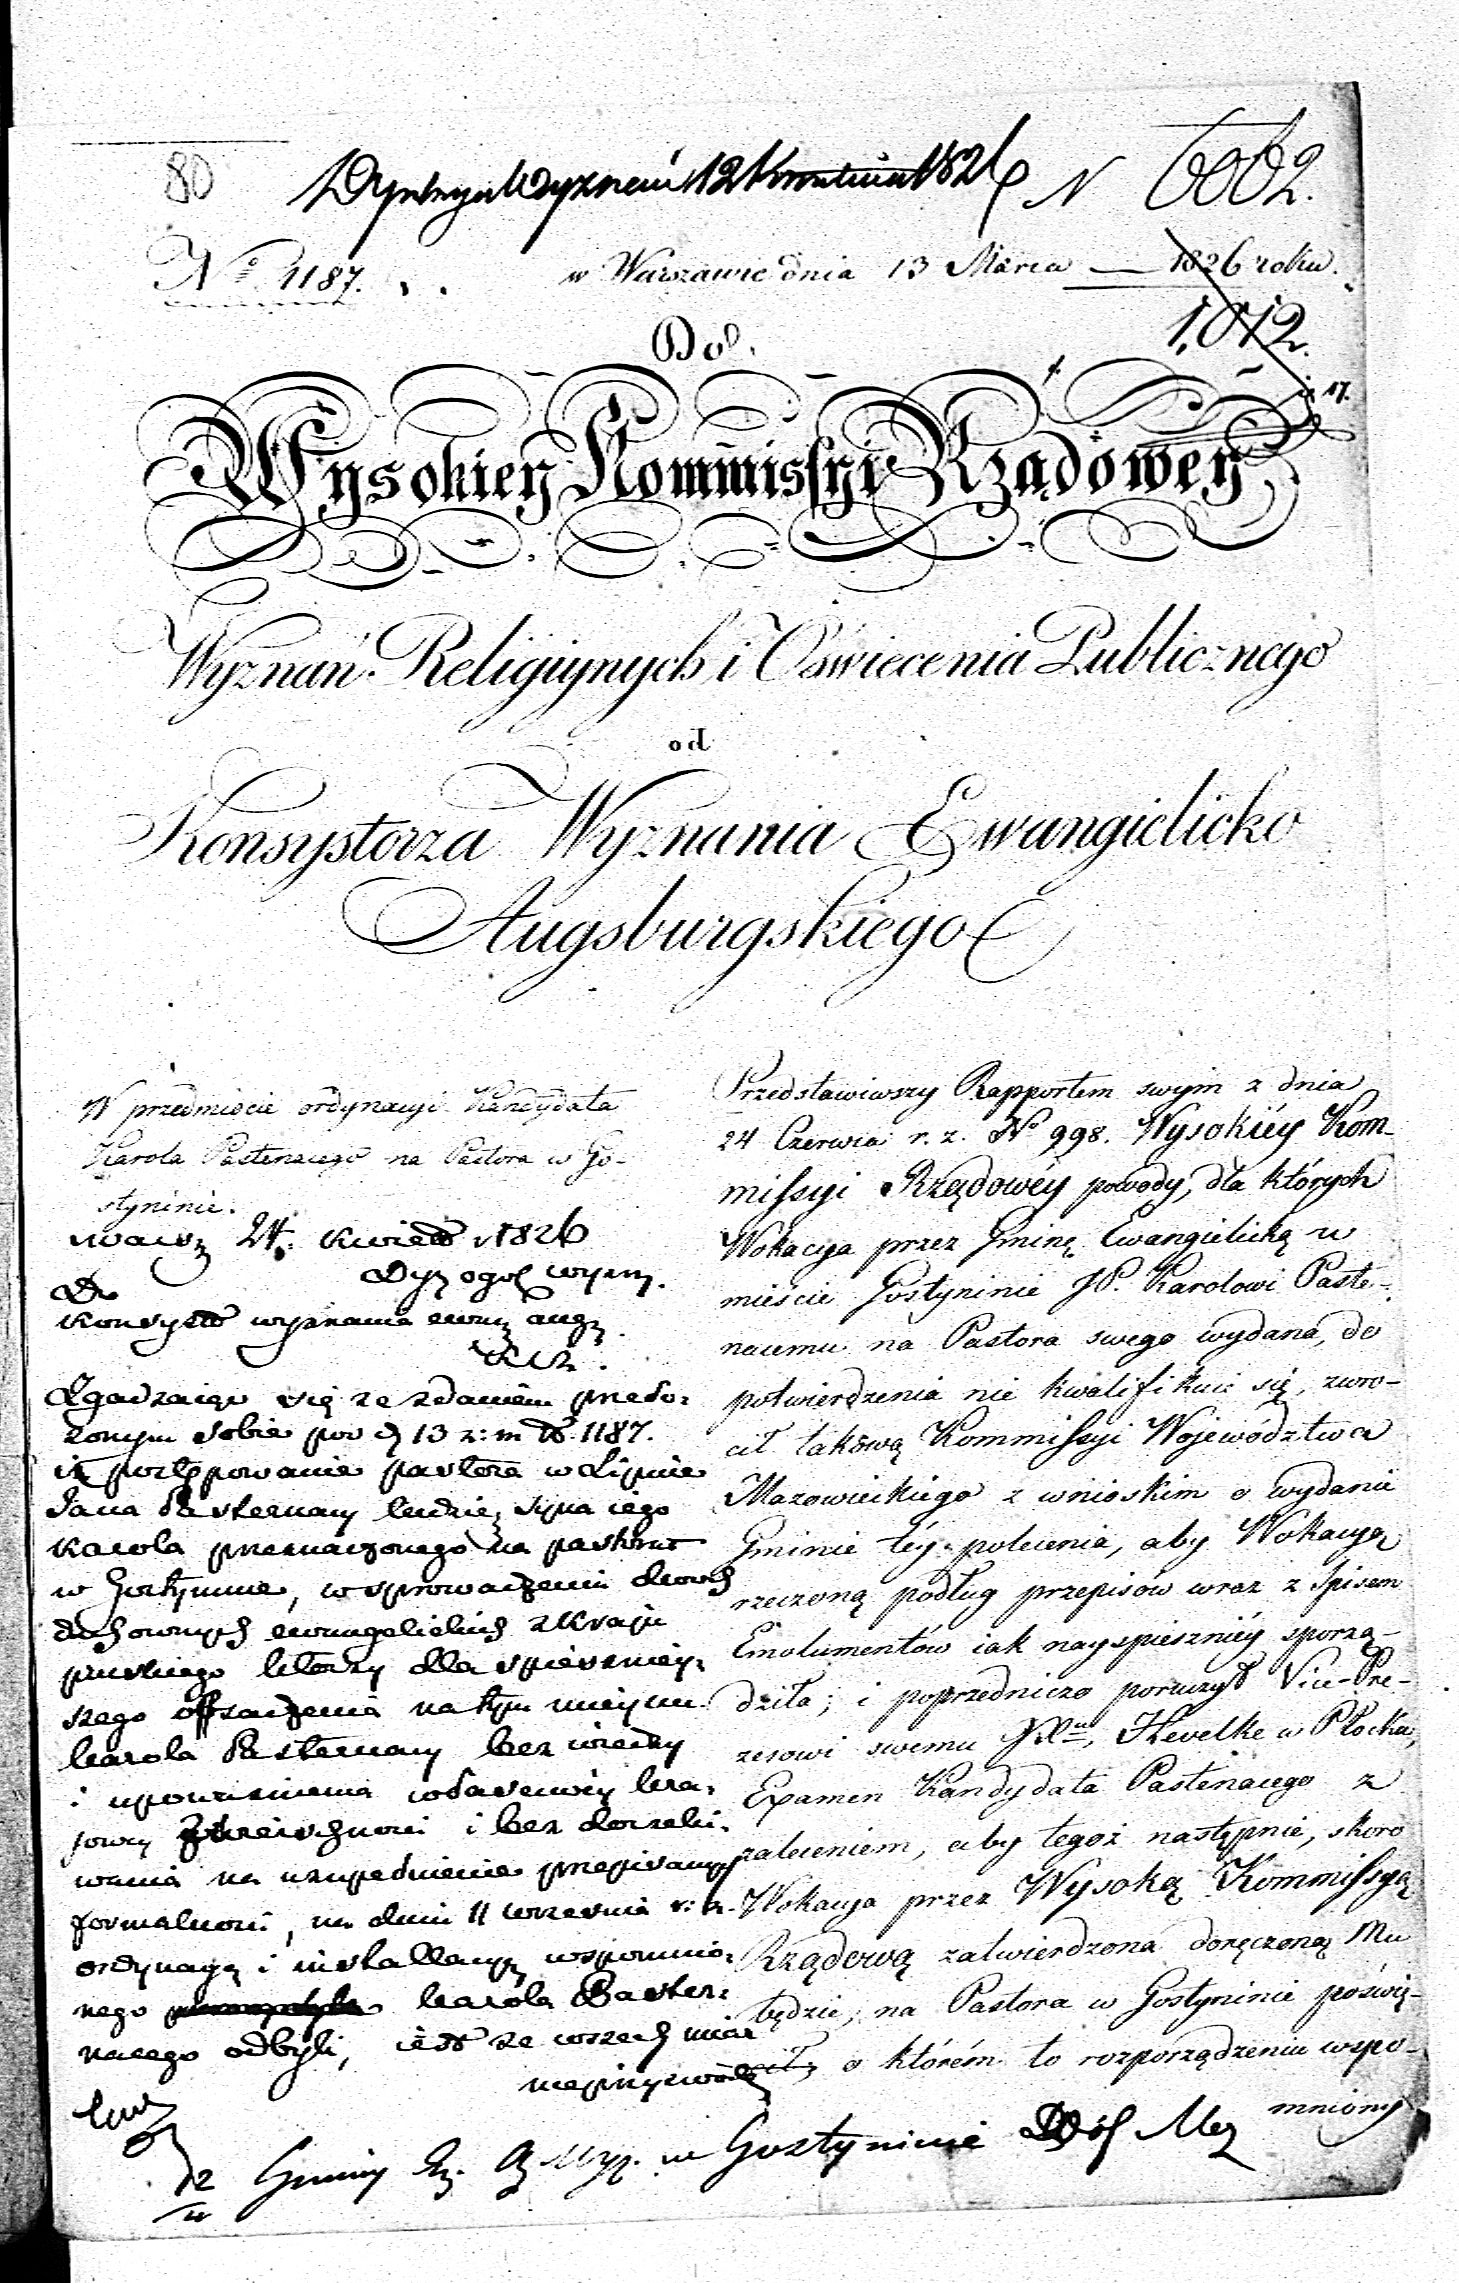 80
12 Kwietnia 1826 N 6062.
No 1187. w Warszawie dnia 13 Marca — 1826 roku.
1,012.
Do
17.
Wysokiey Kommissyi Rządowey
Wyznań Religiynych i Oświecenia Publicznego
od
Konsystorza Wyznania Ewangielicko
Augsburgskiego
W przedmiocie ordynacyi Kandydata
Karola Pastenaciego na Pastora w Go-
styninie.
24. 1826
Do
wyznania
Zgadzaiąc się ze zdaniem przeło-
żonym sobie pod d 13 z: m No 1187.
iż postępowanie pastora w Lipnie
Jana Pasternacy tudzież syna iego
Karola przeznaczonego na pastora
w Gostyninie, w sprowadzeniu dwóch
duchownych ewangelickich z Kraju
pruskiego którzy dla spieszniey-
szego na tym mieyscu
Karola Pasternacy bez wiedzy
i upoważnienia właściwey kra-
jowey zwierzchności i bez doczeki-
wania na uzupełnienie przepisanych
formalności, na dniu 11 września r: z.
ordynacyą i installacyą wspomnio-
nego Karola Paster-
nacego odbyli, iest ze wszech miar
Przedstawiwszy Rapportem swym z dnia
24 Czerwca r. z. No 998. Wysokiéy Kom-
missyi Rządowéy powody, dla których
Wokacya przez Gminę Ewangielicką w
mieście Gostyninie JP. Karolowi Paste-
nacemu na Pastora swego wydana, do
potwierdzenia nie kwalifikuie się, zwró-
cił takową Kommissyi Województwa
Mazowieckiego z wnioskiem o wydanie
Gminie téy polecenia, aby Wokacyą
rzeczoną podług przepisów wraz z Spisem
Emolumentów iak nayspieszniéy sporzą-
dziła; i poprzedniczo poruczył Vice-Pre-
zesowi swemu Hevelke w Płocku,
Examen Kandydata Pastenacego z
zaleceniem, aby tegoż następnie, skoro
Wokacya przez Wysoką Kommissyą
Rządową zatwierdzona doręczoną Mu
będzie, na Pastora w Gostyninie poświę-
cił, o którém to rozporządzeniu wspo-
mniony
Gminy w Gostyninie